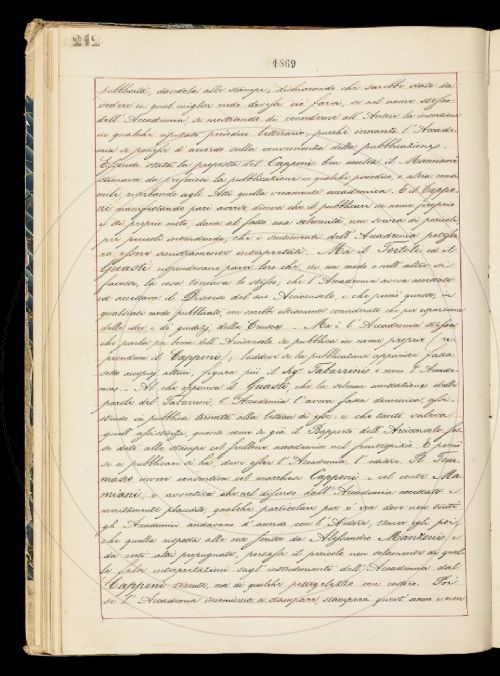 212
1869
pubblicità, dandola alle stampe, dichiarando che sarebbe stato da
vedere in qual miglior modo dovesse ciò farsi, se nel nome stesso
dell'Accademia, se mostrando di consentirne all'Autore la inserzione
in qualche reputato periodico letterario, purchè innanzi l'Accade-
mia si ponesse d'accordo sulla convenienza della pubblicazione. -
Essendo stata la proposta del Capponi ben accolta, il Mamiani
stimava da preferirsi la pubblicazione in qualche periodico, o altra consi-
mile, riserbando agli Atti quella veramente accademica. E il Cappo-
ni manifestando pari avviso, diceva che il pubblicare in nome proprio
e di proprio moto, dava al fatto una solennità, non scevra di pericoli,
per pericolo intendendo, che i sentimenti dell'Accademia potesse-
ro essere sinistramente interpretati. - Ma il Tortoli ed il
Guasti riprendevano parer loro che, in un modo o nell'altro si
facesse, la cosa tornava lo stesso, chè l'Accademia aveva ascoltato
ed accettato il Discorso del suo Arciconsolo, e che perciò questo, in
qualsiasi modo pubblicato, non sarebbe altrimenti considerato che per espressione
delle idee e di giudizj della Crusca. - Ma è l'Accademia stessa
che parla per bocca dell'Arciconsolo se pubblica in nome proprio (ri-
prendeva il Capponi), laddove se la pubblicazione apparisce fatta
sotto auspicj altrui, figura più il Sig.r Tabarrini e meno l'Accade-
mia. - Al che opponeva il Guasti, che la solenne accettazione delle
parole del Tabarrini l'Accademia l'aveva fatta domenica, assi-
stendo in pubblica tornata alla lettura di esse; e che tanto valeva
quell'assistenza, quanto come se già il Rapporto dell'Arciconsolo fos-
se dato alle stampe col frullone accademico nel frontespizio. E perciò
se a pubblicare si ha, deve esser l'Accademia l'editore. Il Tom-
maseo invece consentiva col marchese Capponi e col conte Ma-
miani, e avvertiva che nel discorso dall'Accademia accettato e
meritamente plaudito, qualche particolare pur v'era dove non tutti
gli Accademici andavano d'accordo con l'Autore,
che quella risposta alle cose sentite da Alessandro Manzoni, e
da certi altri propugnate, portasse il pericolo non solamente di quel-
le false interpretazioni sugl'intendimenti dell'Accademia dal
Capponi temute, ma di qualche pettegolezzo con costoro. Poi
se l'Accademia incomincia a stampare, stamperà quest'anno e non